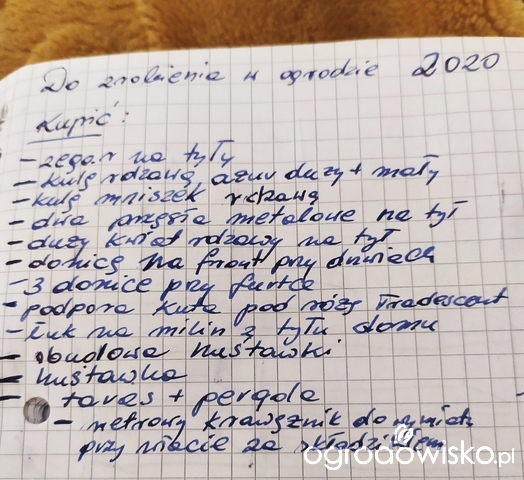 Do zrobienia w ogrodzie 2020
Kupić:
- zegar na tyły
- kulę rdzawą ażur duży + mały
- kulę mniszek rdzawą
- dwa przęsła metalowe na tył
- duży kwiat rdzawy na tył
- donicę na front przy drzwiach
- 3 donice przy furtce
- podpora kuta pod różę Tradescant
- łuk na milin z tyłu domu
- obudowa huśtawki
- huśtawka
- taras + pergola
- metrowy krawężnik do wymiany
przy wiacie za składzikiem
ogrodowisko.pl